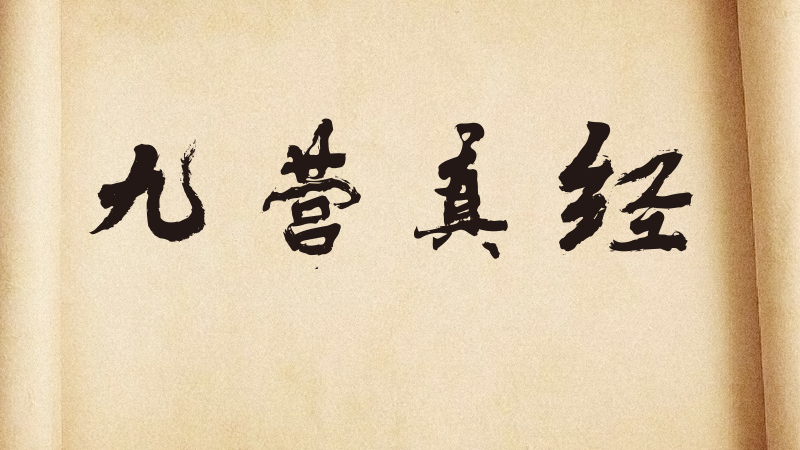 九营真经